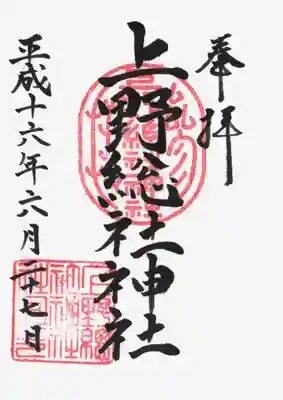 奉拝
上野総社神社
平成十六年六月二十七日